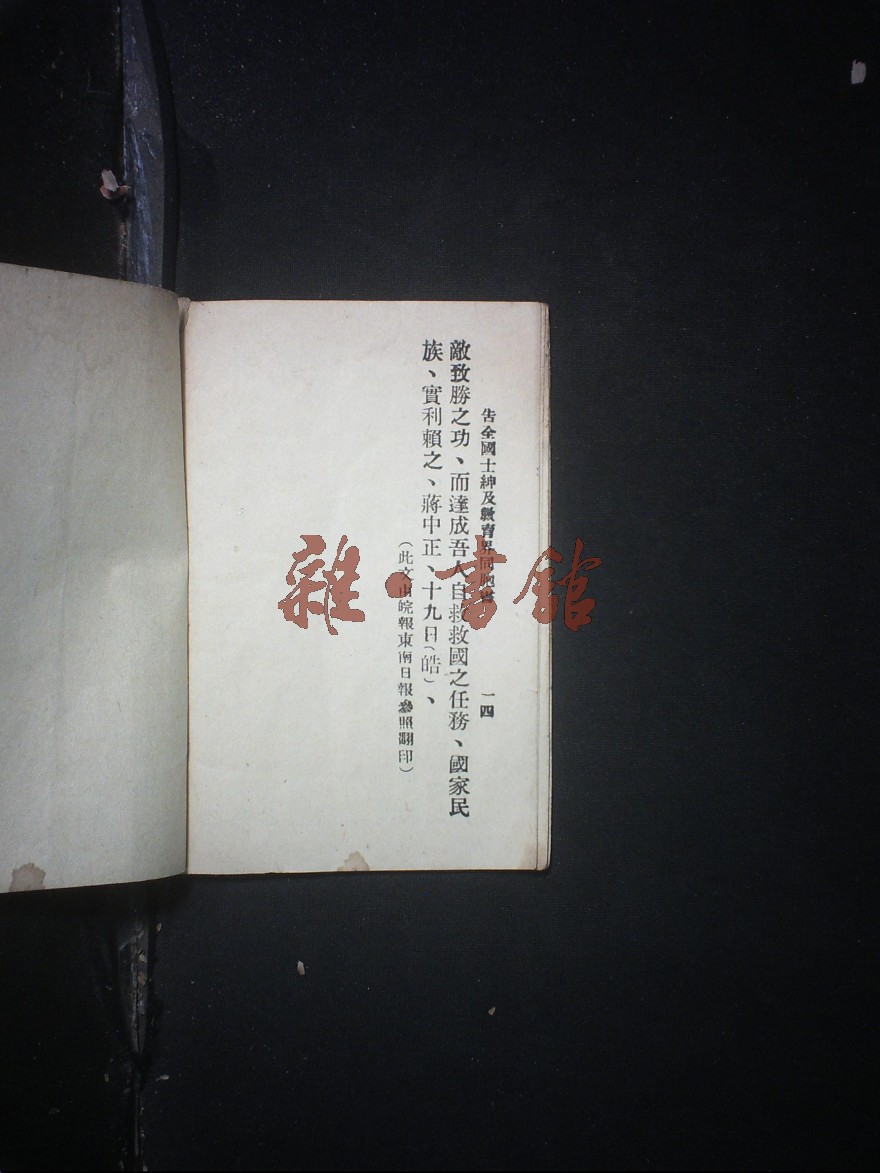 告全國士紳及教育界同胞書 一四
敵致勝之功、而達成吾人自救救國之任務、國家民
族、實利賴之、蔣中正、十九日(皓)、
(此文由皖報東南日報參照翻印)
雜·書館